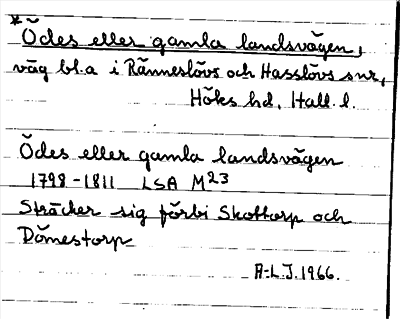 *Ödes eller gamla landsvägen,
väg bl.a i Ränneslövs och Hasslövs snr,
Höks hd, Hall. l.
Ödes eller gamla landsvägen
1798-1811 LSA M23
Sträcker sig förbi Skottorp och
Dömestorp
A-L.J. 1966.